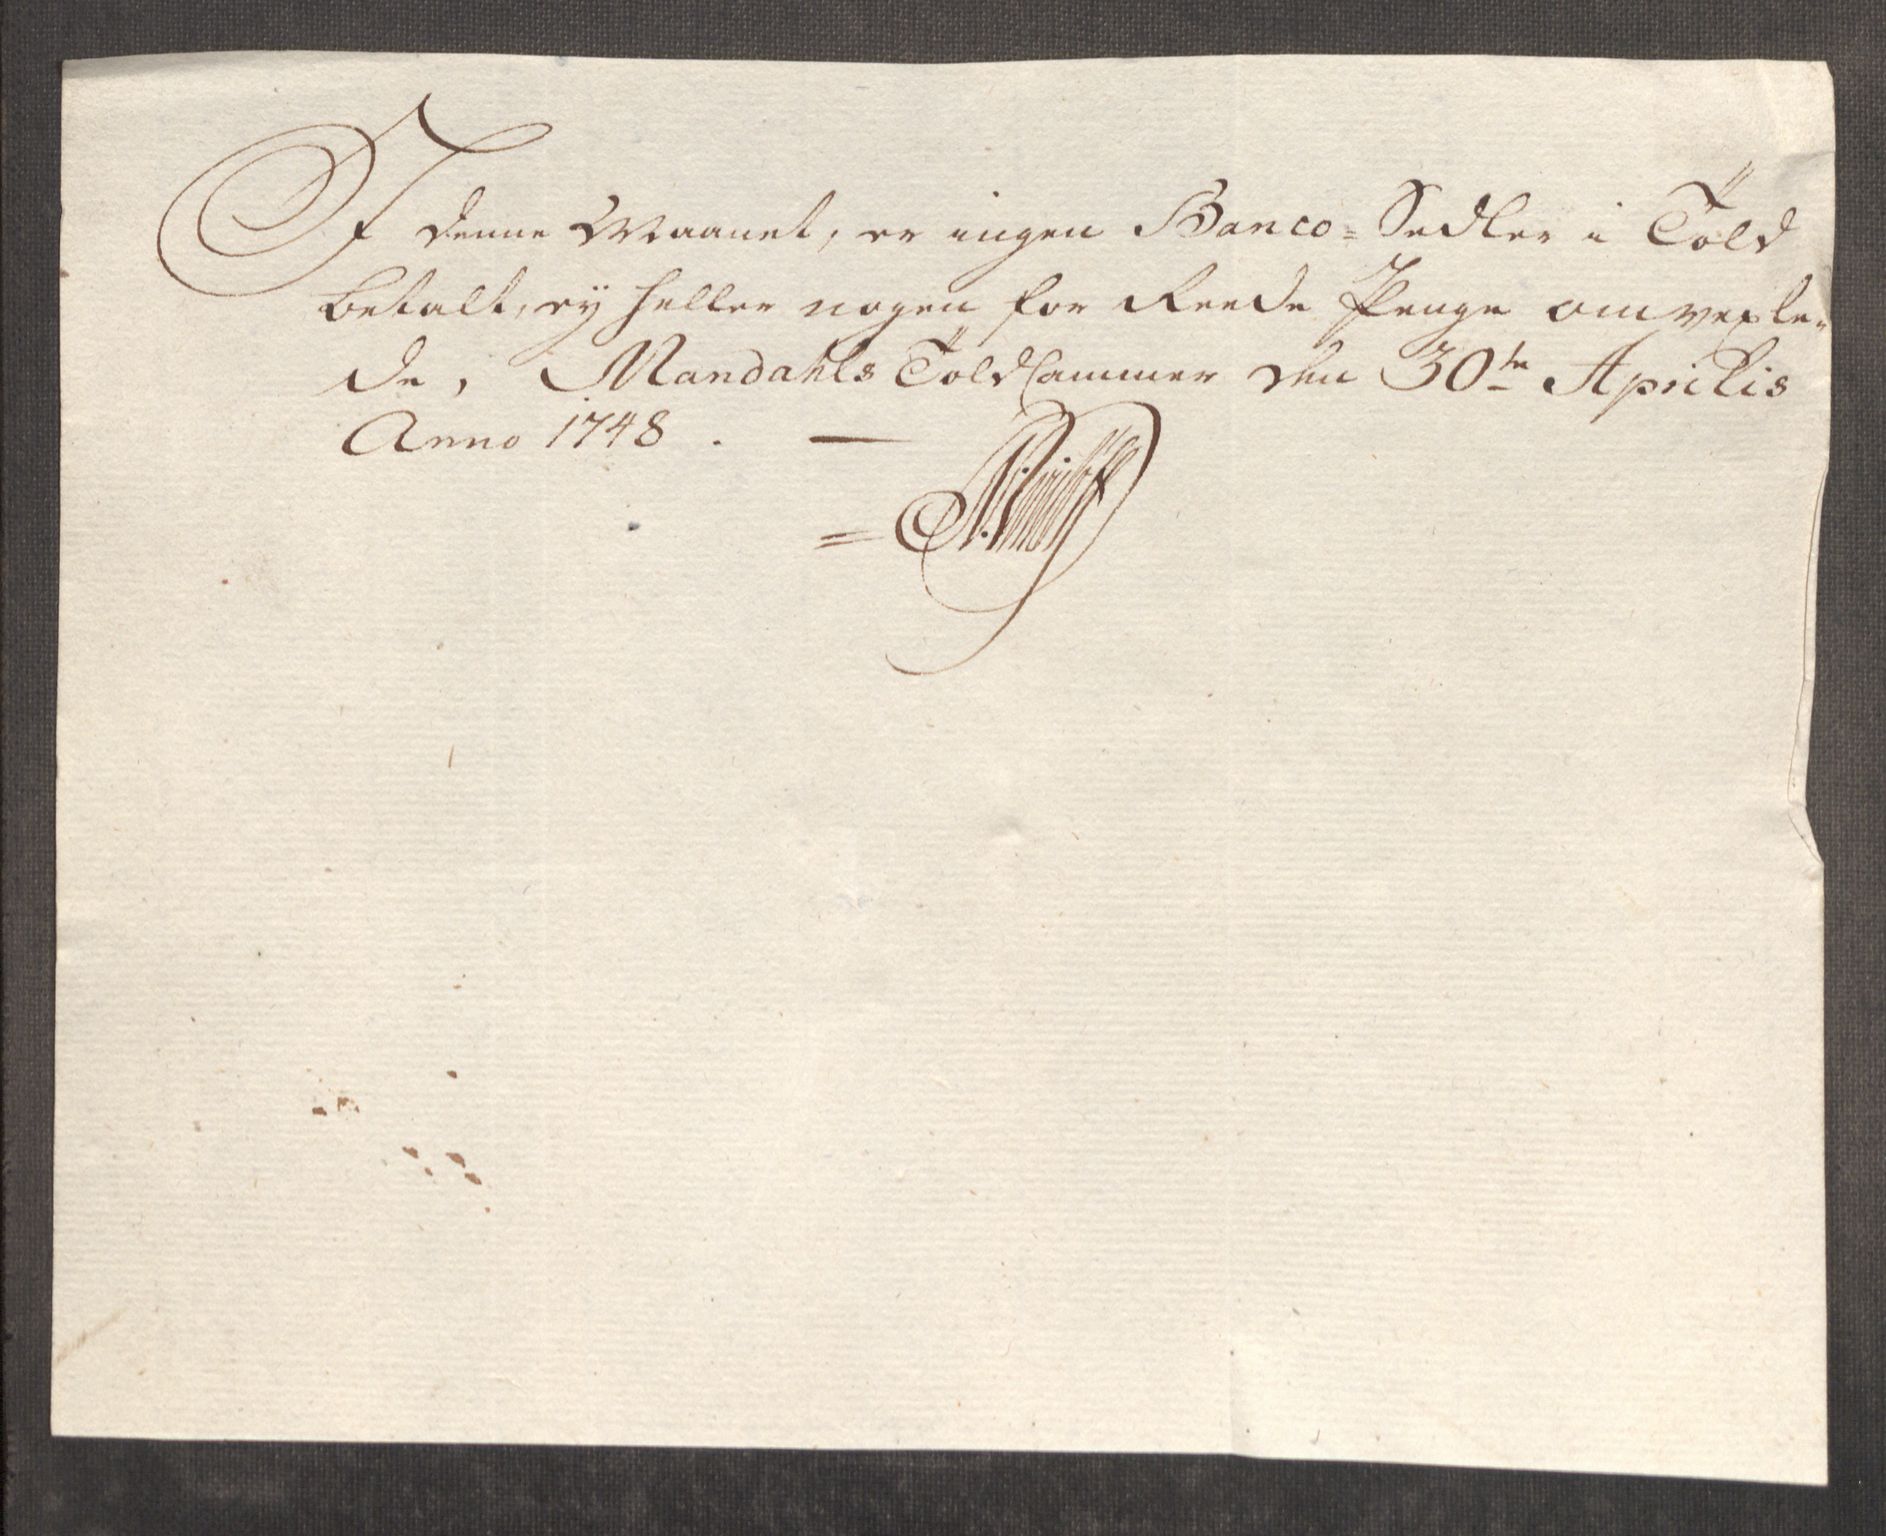 I denne Maanet, er ingen Banco=Sedler i Töld
betalt, eÿ heller nogen for Reede Penge omvexle=
de, Mandahls TöldCammer den 30te Aprilis
Anno 1748. —